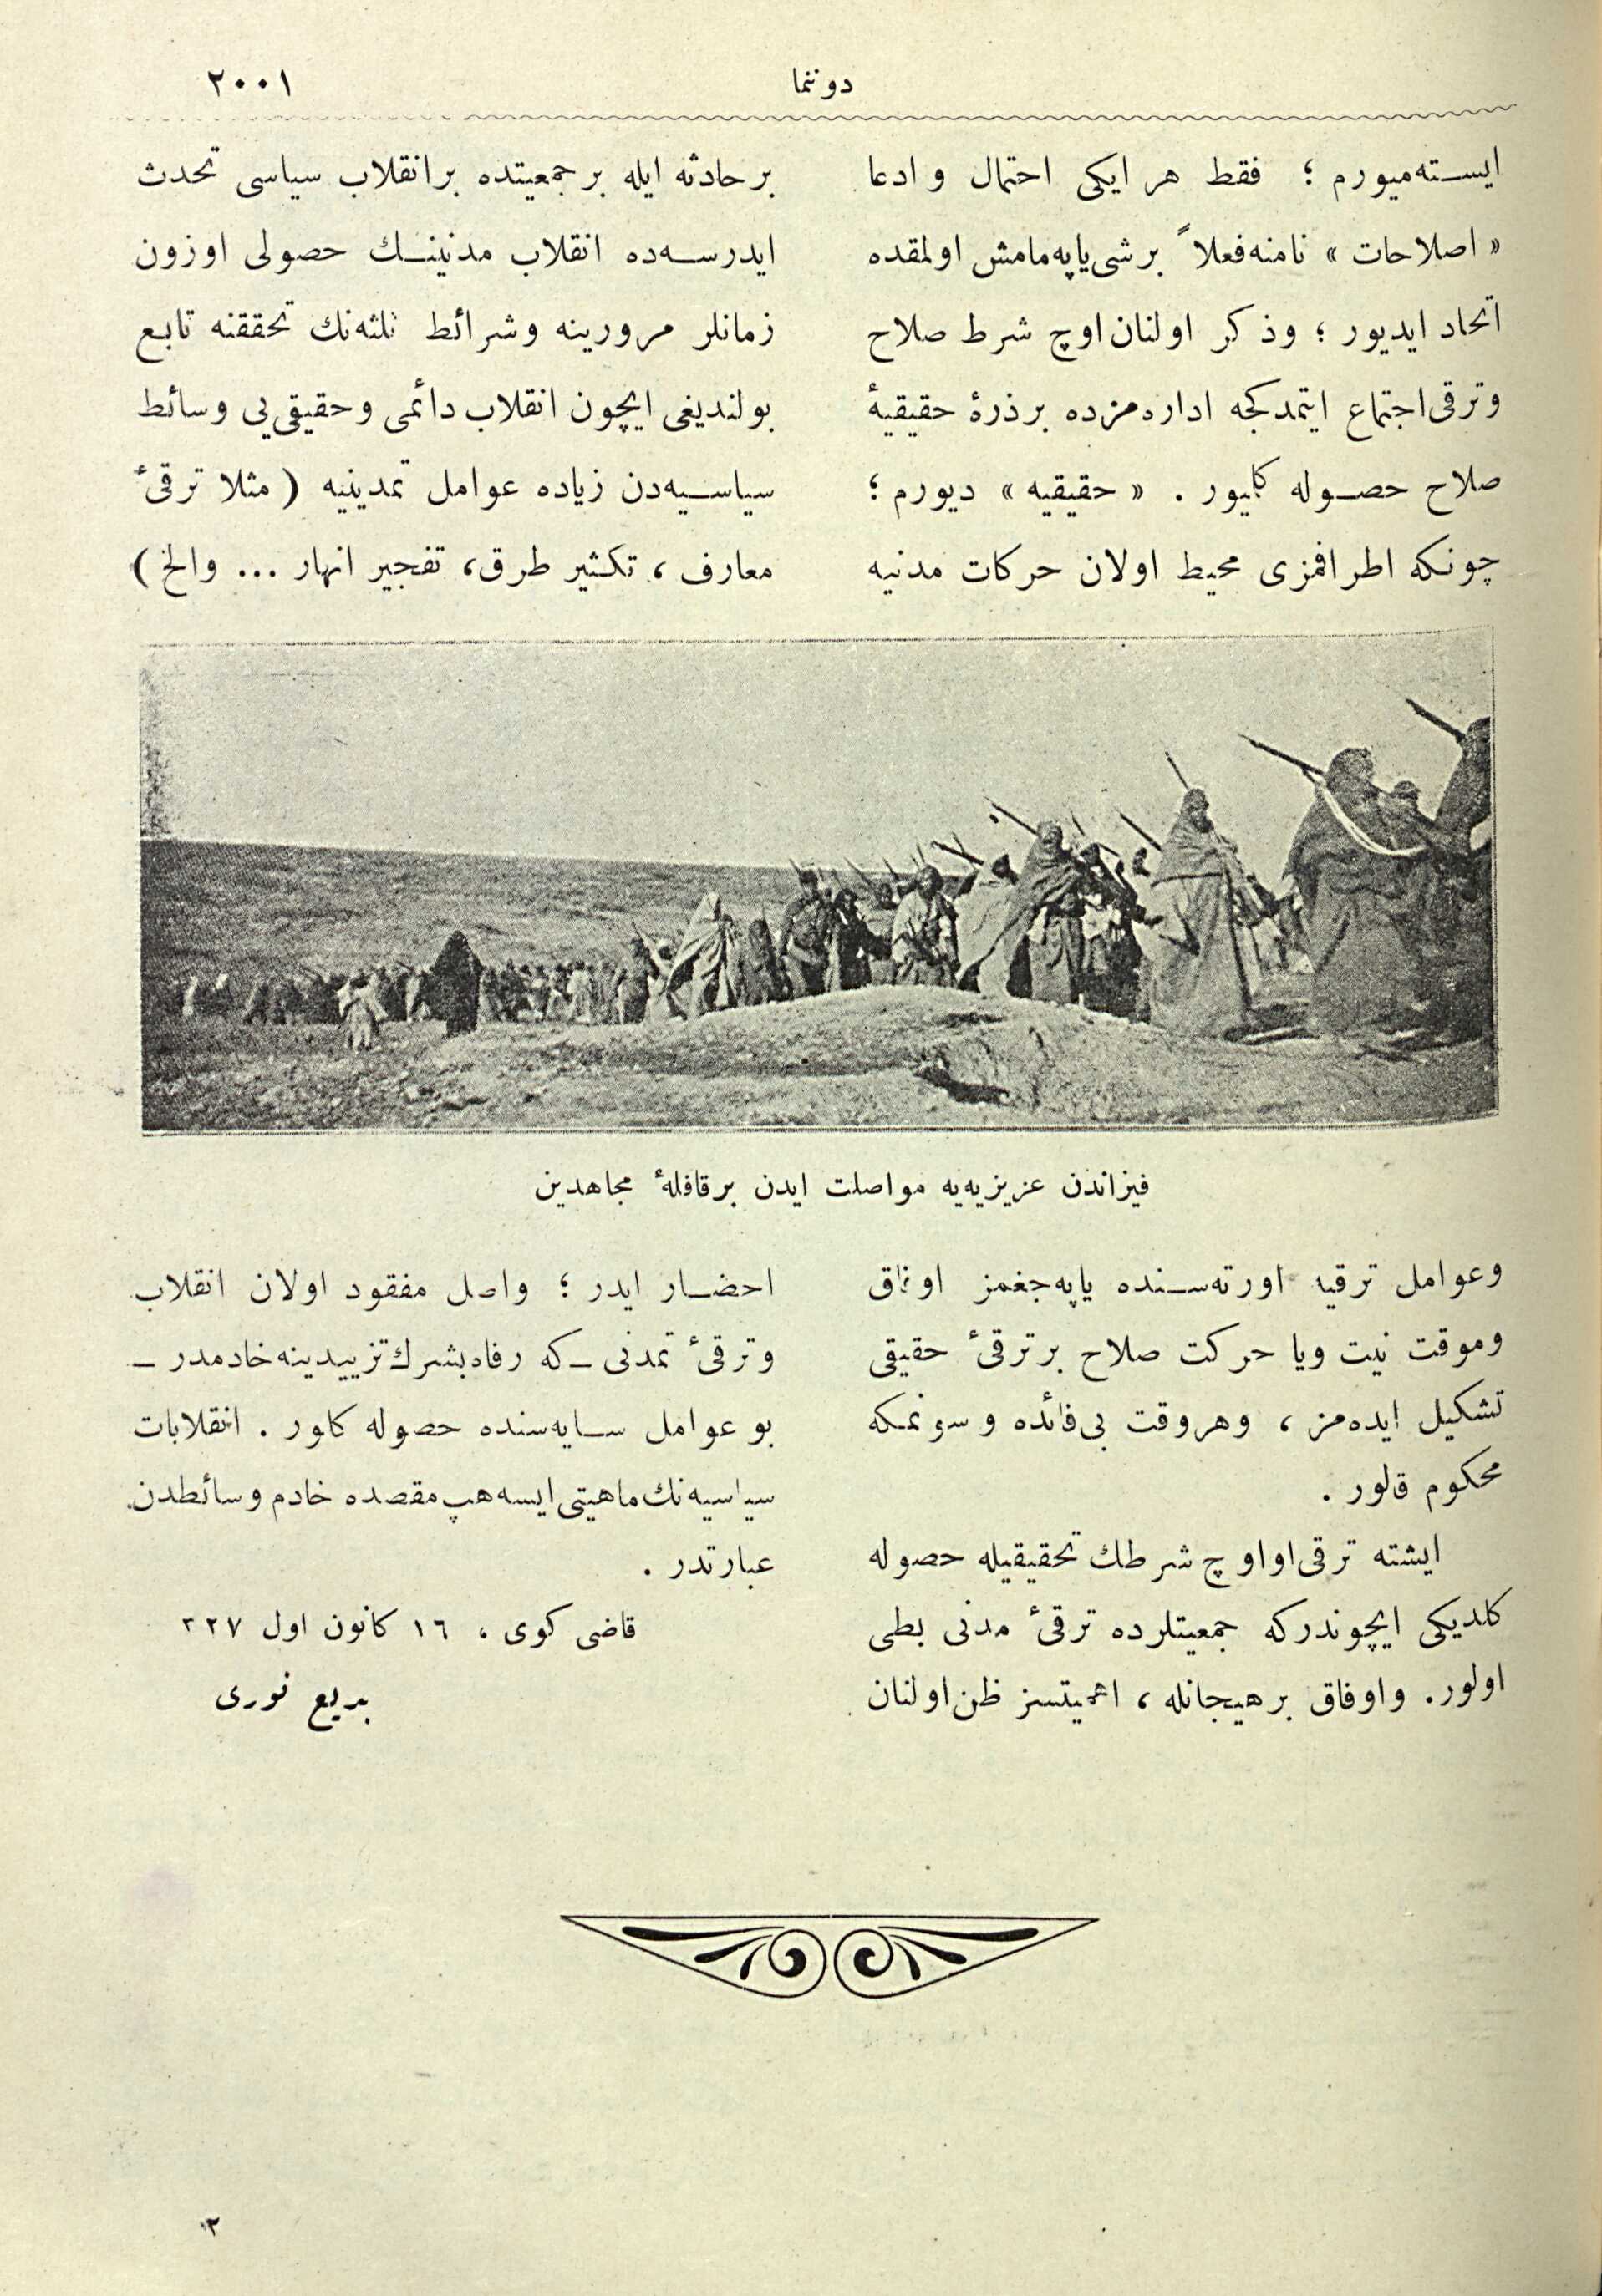 دوننما
٢٠٠١
ایسته‌میورم ؛ فقط هر ایکی احتمال و ادعا
« اصلاحات » نامنه فعلاً بر شی یاپه‌مامش اولمقده
اتحاد ایدیور ؛ وذكر اولنان اوچ شرط صلاح
وترقی اجتماع ایتمدکجه اداره‌مزده بر ذرهٔ حقیقیهٔ
صلاح حصوله کلیور . « حقیقیه » دیورم ؛
چونکه اطرافمزی محیط اولان حرکات مدنیه
وعوامل ترقیه اورته‌سنده یاپه‌جغمز اوفاق
وموقت نیت ویا حرکت صلاح بر ترقیٔ حقیقی
تشکیل ایده‌مز ، وهروقت بی‌فائده و سونمکه
محکوم قالور .
ایشته ترقی او اوچ شرطك تحقیقیله حصوله
کلدیکی ایچوندرکه جمعیتلرده ترقیٔ مدنی بطی
اولور. واوفاق بر هیجانله ، اهمیتسز ظن اولنان
بر حادثه ایله بر جمعیتده بر انقلاب سیاسی تحدث
ایدرسه‌ده انقلاب مدنینك حصولی اوزون
زمانلر مرورینه وشرائط ثلثه‌نك تحققنه تابع
بولندیغی ایچون انقلاب دائمی وحقیقی‌یی وسائط
سیاسیه‌دن زیاده عوامل تمدینیه ( مثلا ترقیٔ
معارف ، تکثیر طرق، تفجیر انهار ... والخ )
احضار ایدر ؛ واصل مفقود اولان انقلاب
وترقیٔ تمدنی ـ که رفاه بشرك تزییدینه خادمدر ـ
بو عوامل سایه‌سنده حصوله کلور . انقلابات
سیاسیه‌نك ماهیتی ایسه هپ مقصده خادم وسائطدن
عبارتدر .
قاضی کوی ، ١٦ کانون اول ٣٢٧
بدیع نوری
فیزاندن عزیزیه‌یه مواصلت ایدن بر قافلهٔ مجاهدین
٢